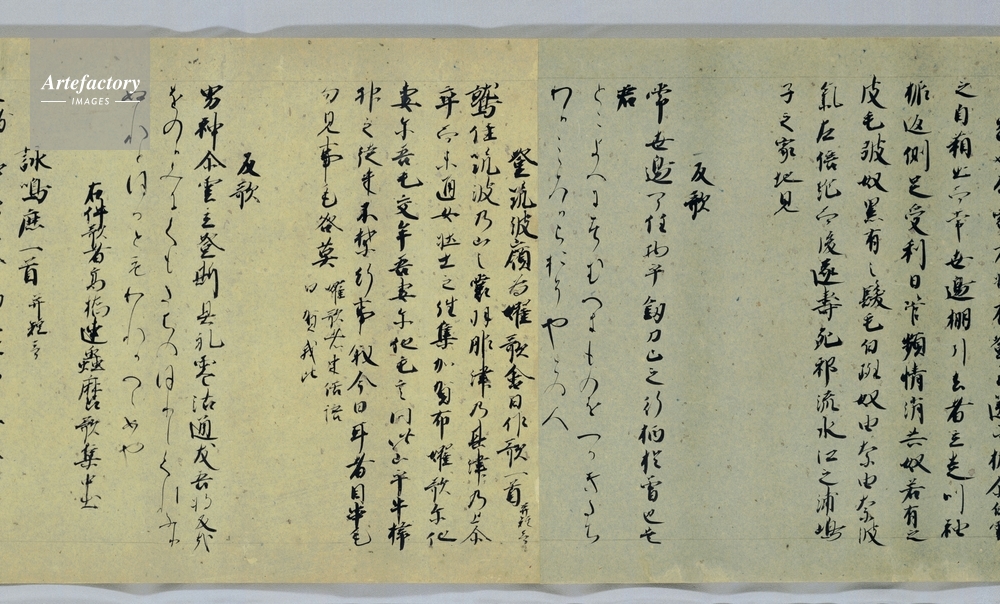 之自箱出而常世邊棚引去者立走叫袖
振返側足受利日管頻情消失奴若有之
皮毛皺奴黒有之髪毛白斑奴由奈由奈波
氣左倍絶而後遂壽死祁流水江之浦嶋
子之家地見
反歌
常世邊可住物乎劔刀己之行柄於曽也是
君
とこよへにすむへきものをつるきたち
わかこゝろからおそやこの人
登筑波嶺為嬥歌會日作歌一首并短哥
鷲住筑波乃山之裳羽服津乃其津乃上尓
率而未通女壮士之往集加賀布嬥歌尓他
妻尓吾毛交牟吾妻尓他毛言問此山乎牛掃
神之従来不禁行事叙今日耳者目串毛
勿見事毛咎莫 嬥歌者東俗語
曰賀我比
反歌
男神尓雲立登斯具礼零沾通友吾将反哉
をのかみにくもたちのほりしくれふり
ぬれとほるともわれかへらめや
右件歌者高橋連蟲麿歌集中出
詠鳴鹿一首并短哥
Artefactory
IMAGES